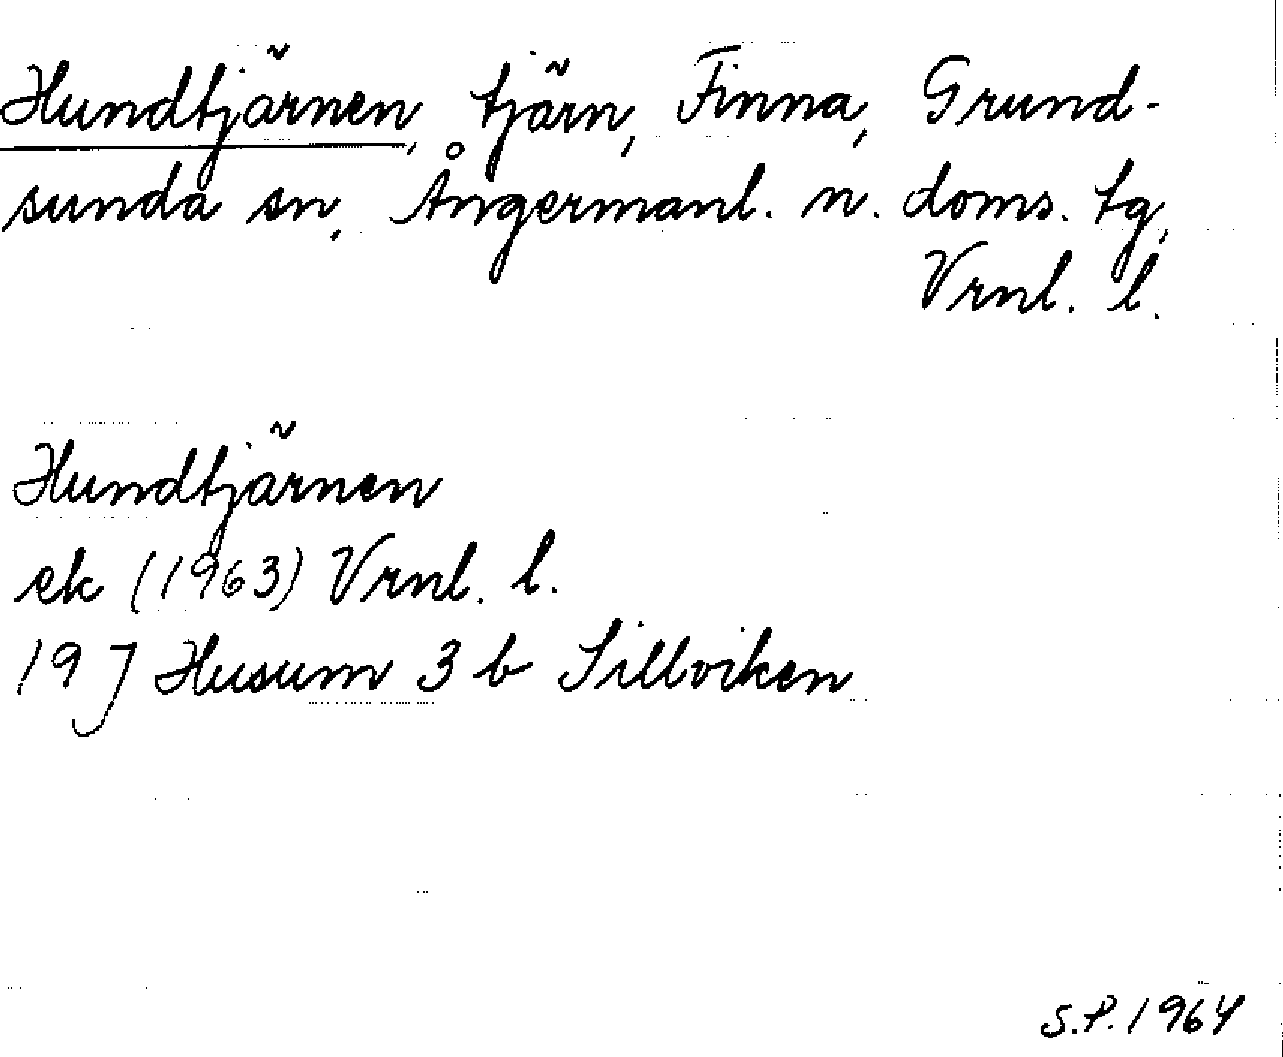 Hundtjärnen, tjärn, Finna, Grund-
sunda sn, Ångermanl. n. doms. tg,
Vrnl. l.
Hundtjärnen
ek (1963) Vrnl. l.
19 J Husum 3 b Sillviken
S.P. 1964